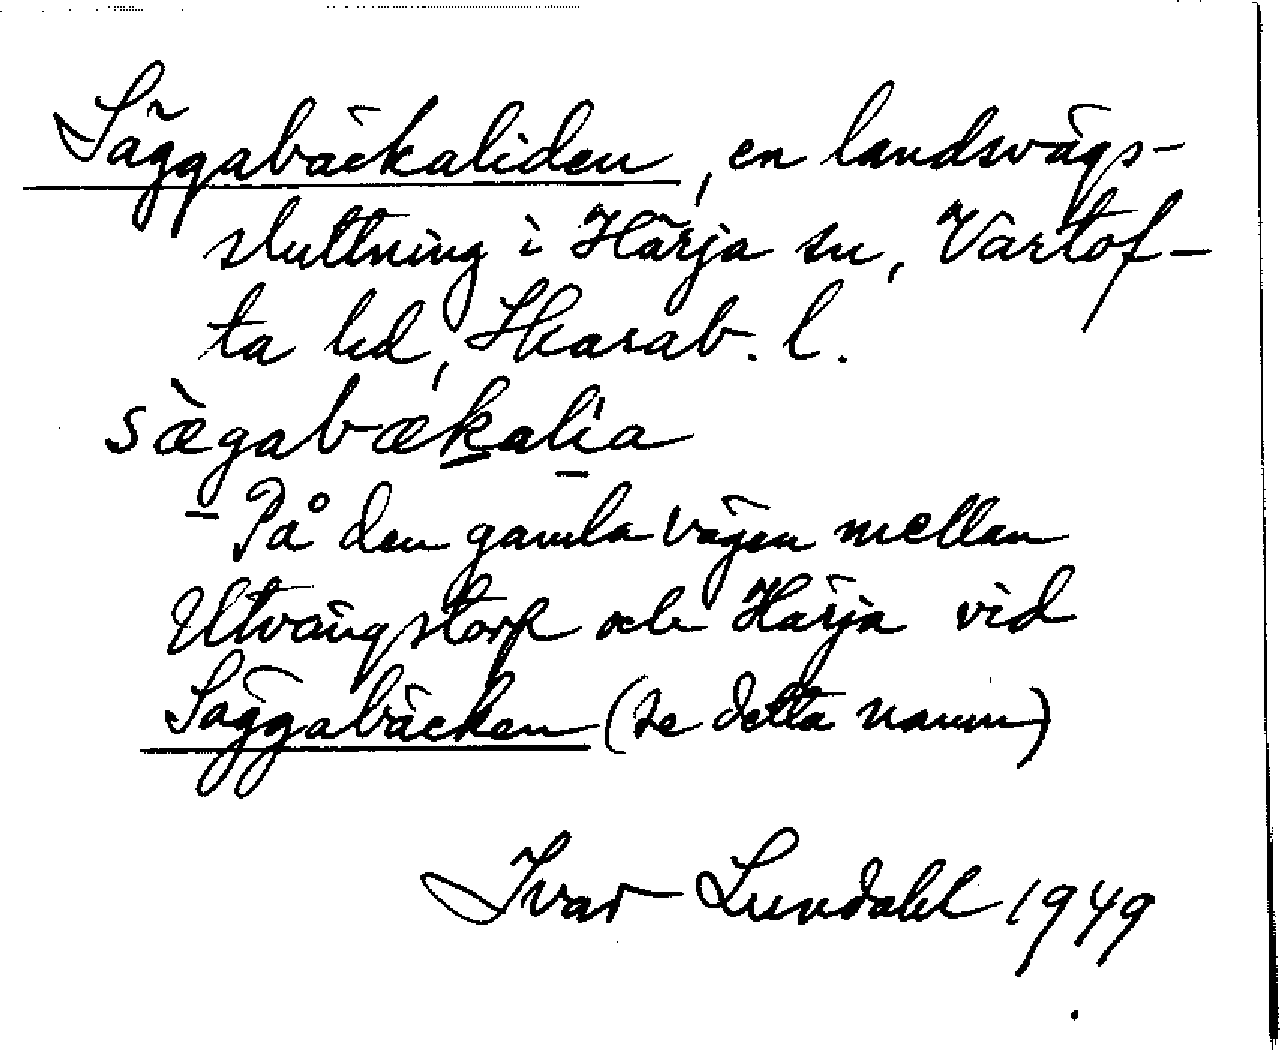 Säggabäckaliden, en landsvägs-
sluttning i Härja sn, Vartof-
ta hd, Skarab. l.
sæ̀gabækalìa
På den gamla vägen mellan
Utvängstorp och Härja vid
Säggabäcken (se detta namn)
Ivar Lundahl 1949